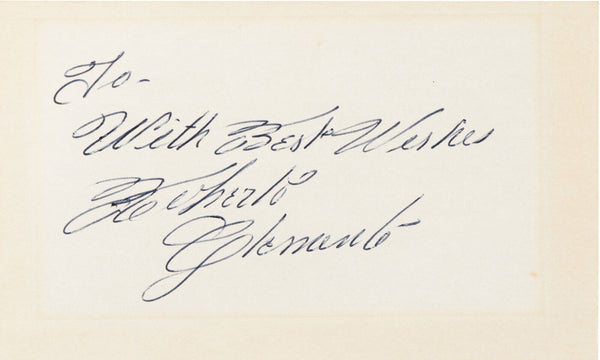 To-
With Best Wishes
Roberto
Clemente